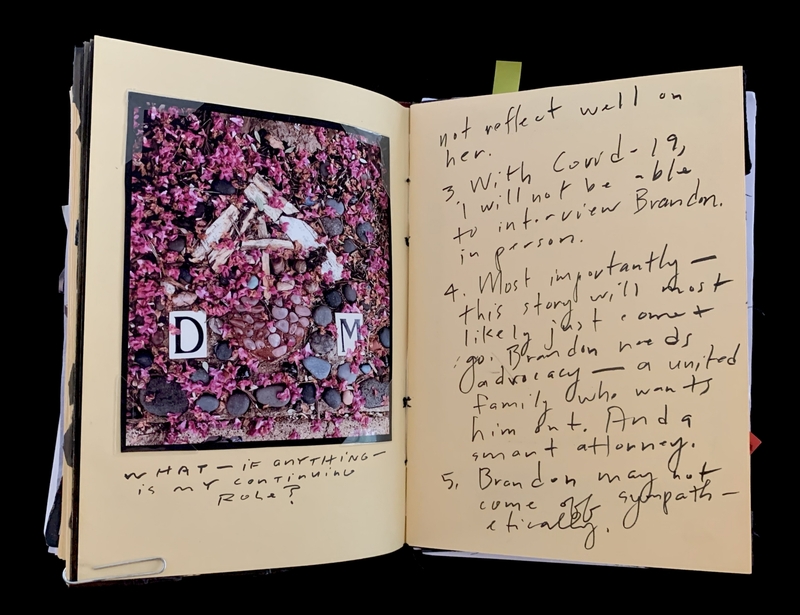 D M
WHAT — IF ANYTHING —
IS MY CONTINUING
ROLE?
not reflect well on
her.
3. With Covid-19,
I will not be able
to interview Brandon
in person.
4. Most importantly —
this story will most
likely just come +
go. Brandon needs
advocacy — a united
family who wants
him out. And a
smart attorney.
5. Brandon may not
come off sympath-
etically.